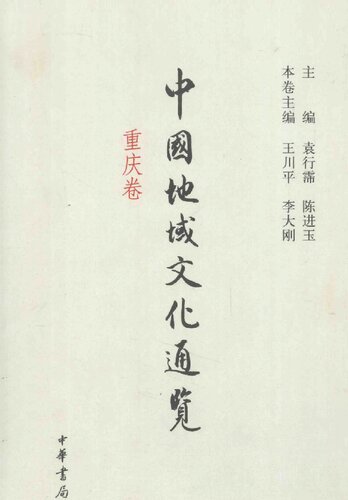 主　编　袁行霈　陈进玉
本卷主编　王川平　李大刚
中國地域文化通覽
重庆卷
中華書局